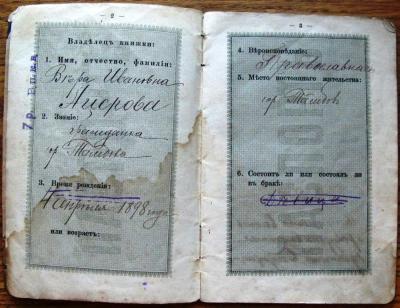 — 2 —
Владѣлецъ книжки:
1. Имя, отчество, фамилія:
Вѣра Ивановна
2. Званіе:
гражданка
гор. Тамбова
3. Время рожденія:
1898 года
или возрастъ:
7 р.
— 3 —
4. Вѣроисповѣданіе:
Православная
5. Мѣсто постояннаго жительства:
гор. Тамбовъ
6. Состоитъ ли или состоялъ ли
въ бракѣ: